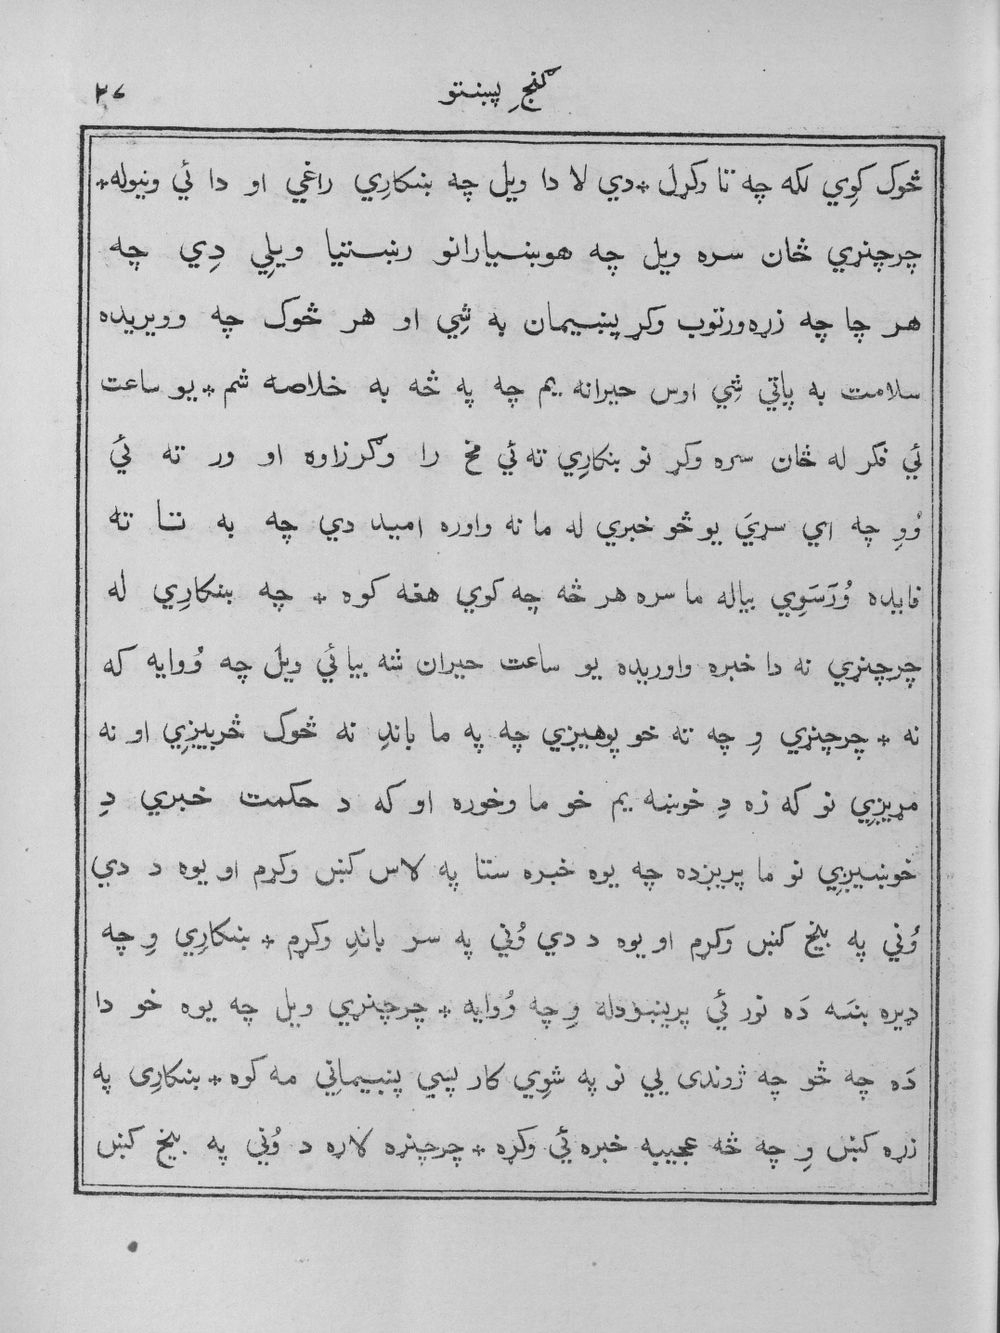 ګنجِ پښتو ٢٧
څوک کوِي لکه چه تا وکړل + دي لا دا ويل چه ښکارِي راغي او دا ئي ونيوله +
چرچنړي ځان سره ويل چه هوښيارانو رښتيا ويلِي دِي چه
هر چا چه زړه‌ورتوب وکړ پښيمان به شِي او هر څوک چه وويريده
سلامت به پاتي شِي اوس حيرانه يم چه په څه به خلاصه شم + يو ساعت
ئي فکر له ځان سره وکړ نو ښکارِي ته ئي مخ را وګرزاوه او ور ته ئي
وُوِ چه اي سړيَ يو څو خبري له ما نه واوره اميد دي چه به تا ته
فايده وُرَسَوِي بيا له ما سره هر څه چه کوي هغه کوه + چه ښکارِي له
چرچنړي نه دا خبره واوريده يو ساعت حيران شه بيا ئي ويل چه وُوايه که
نه + چرچنړي وِ چه ته خو پوهيږي چه په ما باندِ نه څوک څربيږِي او نه
مړيږِي نو که زه دِ خوښه يم خو ما وخوره او که د حکمت خبري دِ
خوښيږِي نو ما پريږده چه يوه خبره ستا په لاس کښ وکړم او يوه د دي
وُني په بيخ کښ وکړم او يوه د دي وُني په سر باندِ وکړم + ښکارِي وِ چه
ډيره ښَه دَه نور ئي پريښودله وِ چه وُوايه + چرچنړي ويل چه يوه خو دا
دَه چه څو چه ژوندی يي نو په شوِي کار پسي پښيماني مه کوه + ښکارِی په
زړه کښ وِ چه څه عجيبه خبره ئي وکړه + چرچنړه لاړه د وُني په بيخ کښ